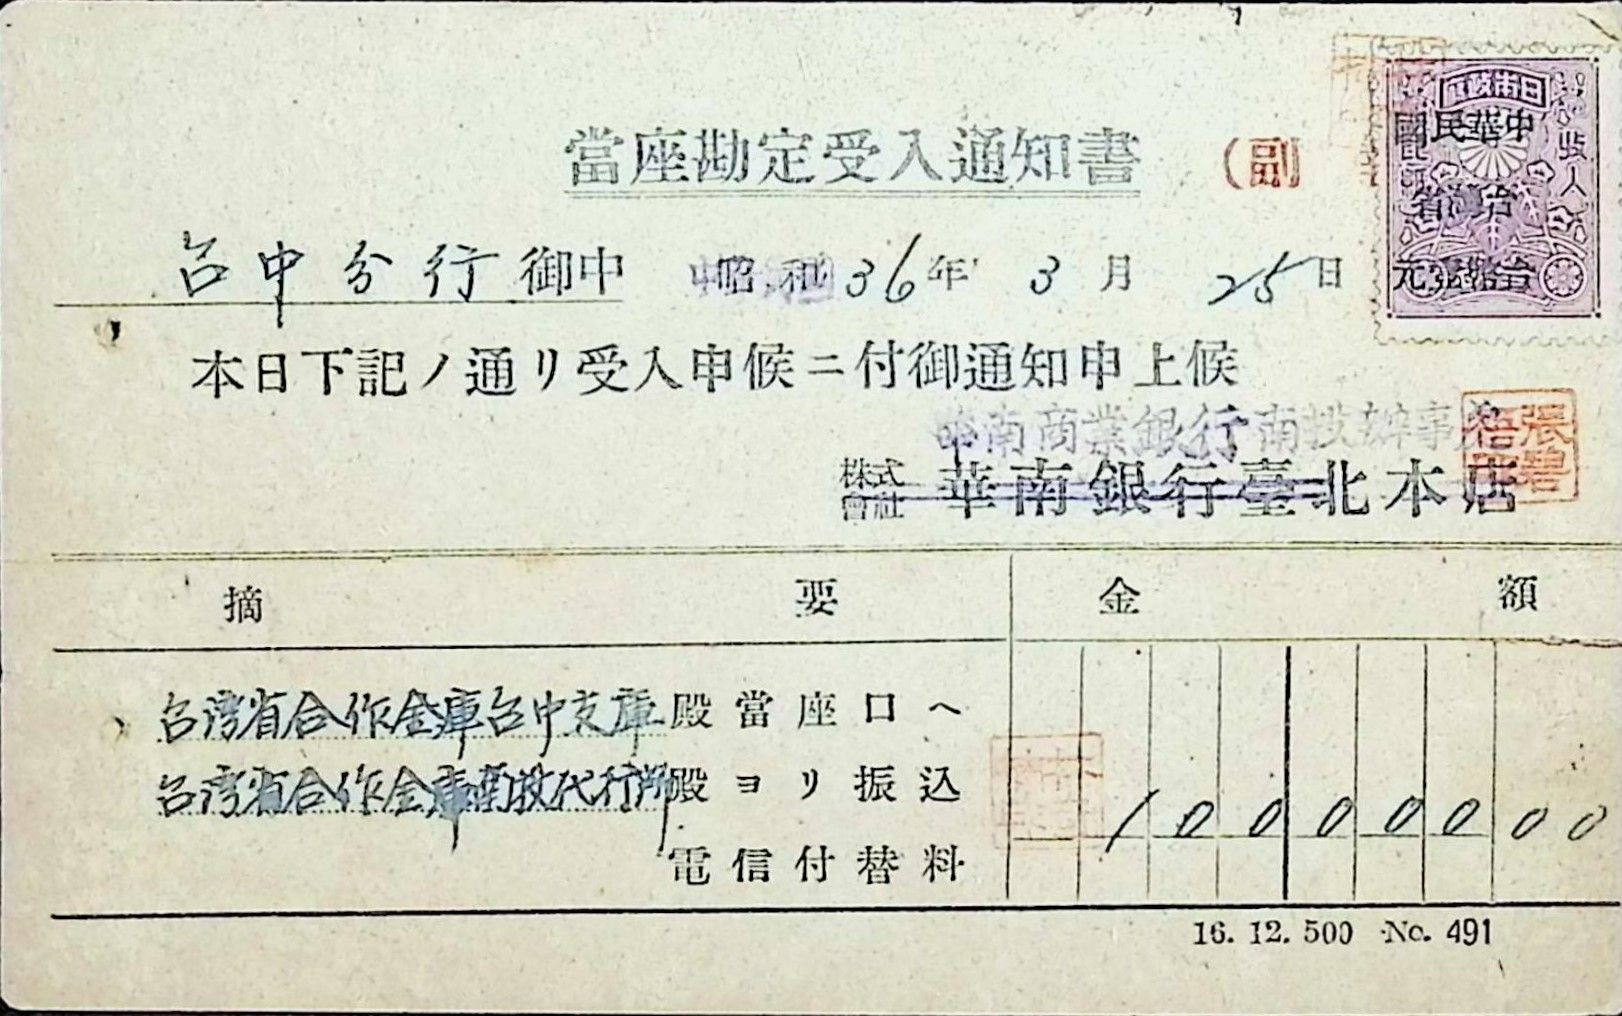 當座勘定受入通知書 (副)
台中分行御中 昭和36年3月25日
本日下記ノ通リ受入申候ニ付御通知申上候
華南商業銀行南投辦事處
株式會社 華南銀行臺北本店
摘要 金額
台湾省合作金庫台中支庫殿當座口ヘ
台湾省合作金庫南投代行所殿ヨリ振込 100000 00
電信付替料
16. 12. 500 No. 491
中華民國
台灣省
收入